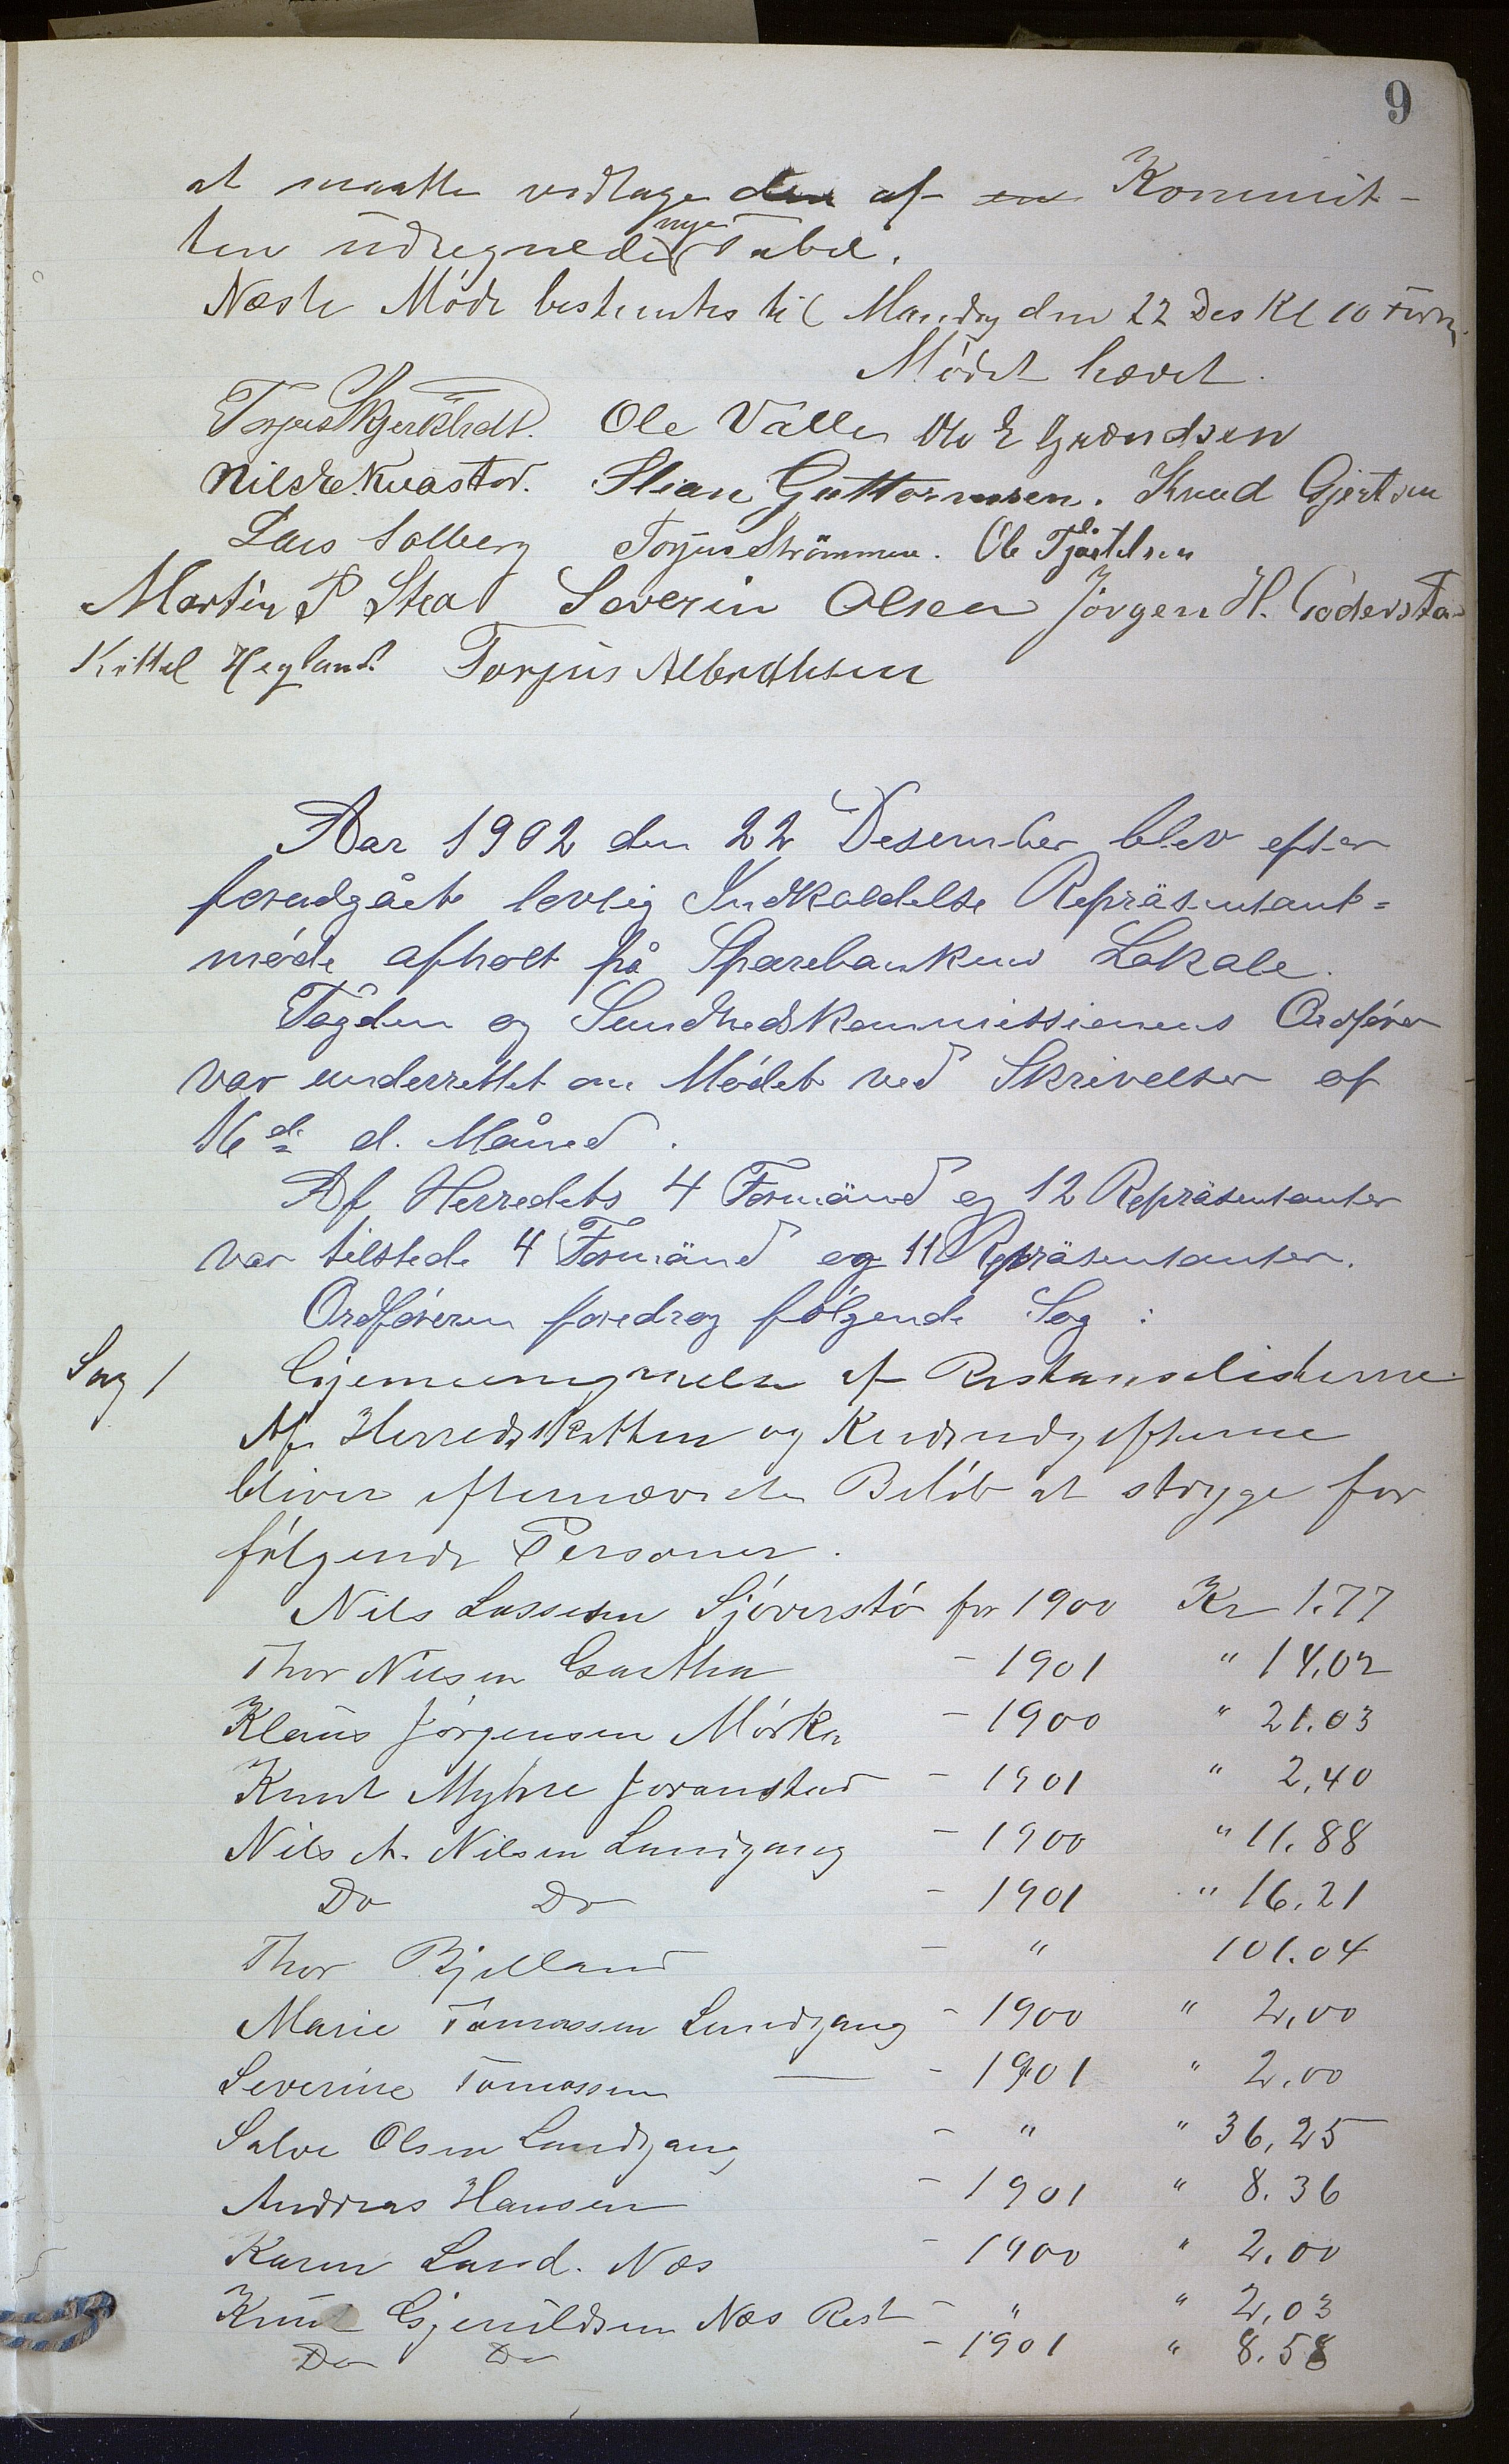 9
at maatte vedtage den af en Kommit-
ten udregnede nye Tabel.
Næste Möde bestemtes til Mandag den 22 Des Kl 10 Form.
Mödet hævet.
Ole Valle Ole E Grundsen
Nils Kvastad. Stian Guttormsen. Knud Gjertsen
Lars Solberg Torjus Strömmen. Ole Tjöstelsen
Martin P Strea Severin Olsen Jörgen H. Goderstad
Kittel Hegland Torjus Albrethsen
Aar 1902 den 22 Desember blev efter
forudgået lovlig Indkaldelse Repräsentant=
møde afholt på Sparebankens Lokale.
Fogden og Sundhedskommissionens Ordfører
var underrettet om Mødet ved Skrivelser af
16de d. Måned.
Af Herredets 4 Formänd og 12 Repräsentanter
var tilstede 4 Formänd og 11 Repräsentanter.
Ordføreren foredrog følgende Sag:
Sag 1 Gjennemgaaelse af Restanselisterne
Af Herredsskatten og Hundeafgifterne
bliver efternævnte Beløb at stryge for
følgende Personer.
Nils Lassesen Sjöverstö for 1900 Kr 1.77
Thor Nilsen Gaarthe - 1901 " 14,02
Klaus Jørgensen Mörk - 1900 " 21.03
Knut Myhre Joranstad - 1901 " 2,40
Nils A. Nilsen Lundgang - 1900 " 11.88
Do Do - 1901 " 16.21
Thor Bjelland - " 101.04
Marie Tomassen Lundgang - 1900 " 2,00
Severine Tomassen — - 1901 " 2.00
Salve Olsen Lundgang - " " 36,25
Andreas Hansen - 1901 " 8.36
Karen Lund. Næs - 1900 " 2.00
Knut Gjeruldsen Næs Rest - " " 2,03
Do Do - 1901 " 8.58